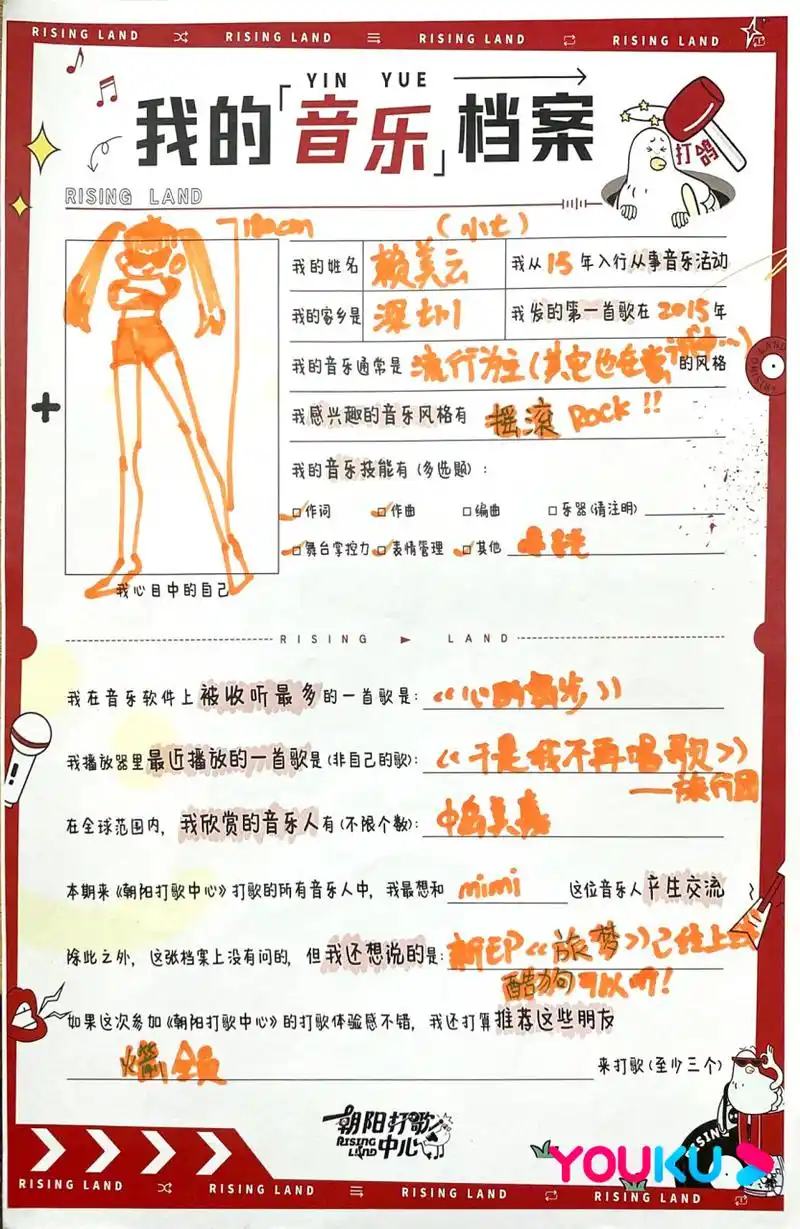 RISING LAND RISING LAND RISING LAND RISING LAND
YIN YUE
我的「音乐」档案
打鸽
RISING LAND
180cm
(小七)
我的姓名 赖美云 我从15年入行从事音乐活动
我的家乡是 深圳 我发的第一首歌在2015年
我的音乐通常是 流行为主(其它也在尝试…) 的风格
我感兴趣的音乐风格有 摇滚 ROCK!!
我的音乐技能有(多选题):
作词 作曲 编曲 乐器(请注明)
舞台掌控力 表情管理 其他
我心目中的自己
RISING LAND
我在音乐软件上被收听最多的一首歌是:《心的舞步》
我播放器里最近播放的一首歌是(非自己的歌):《于是我不再唱歌》
——旅行团
在全球范围内,我欣赏的音乐人有(不限个数): 中岛美嘉
本期来《朝阳打歌中心》打歌的所有音乐人中,我最想和 mimi 这位音乐人产生交流
除此之外,这张档案上没有问的,但我还想说的是: 新EP《旅梦》已经上线
酷狗可以听!
如果这次参加《朝阳打歌中心》的打歌体验感不错,我还打算推荐这些朋友
火箭全员 来打歌(至少三个)
朝阳打歌中心
RISING LAND
RISIN
YOUKU
RISING LAND RISING LAND RISING LAND RISING LAND